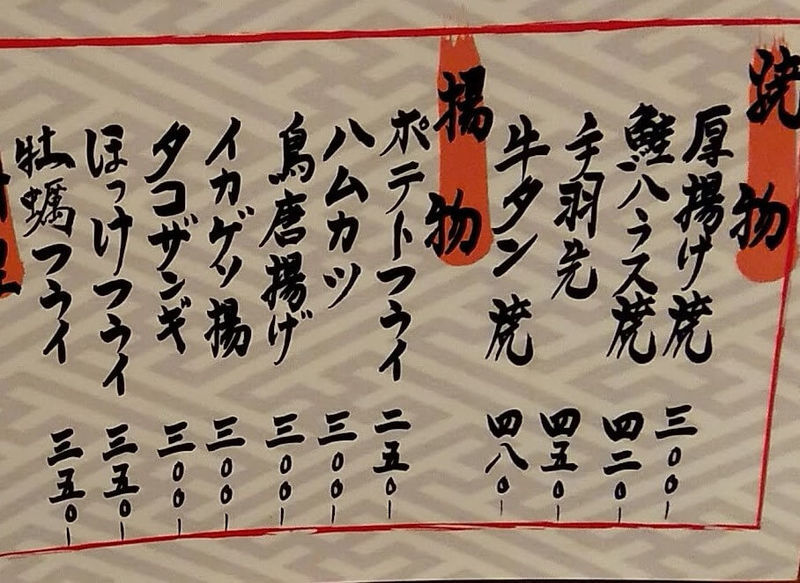 焼物
厚揚げ焼 三〇〇ー
鮭ハラス焼 四二〇ー
手羽先 四五〇ー
牛タン焼 四八〇ー
揚物
ポテトフライ 二五〇ー
ハムカツ 三〇〇ー
鳥唐揚げ 三〇〇ー
イカゲソ揚 三〇〇ー
タコザンギ 三〇〇ー
ほっけフライ 三五〇ー
牡蠣フライ 三五〇ー